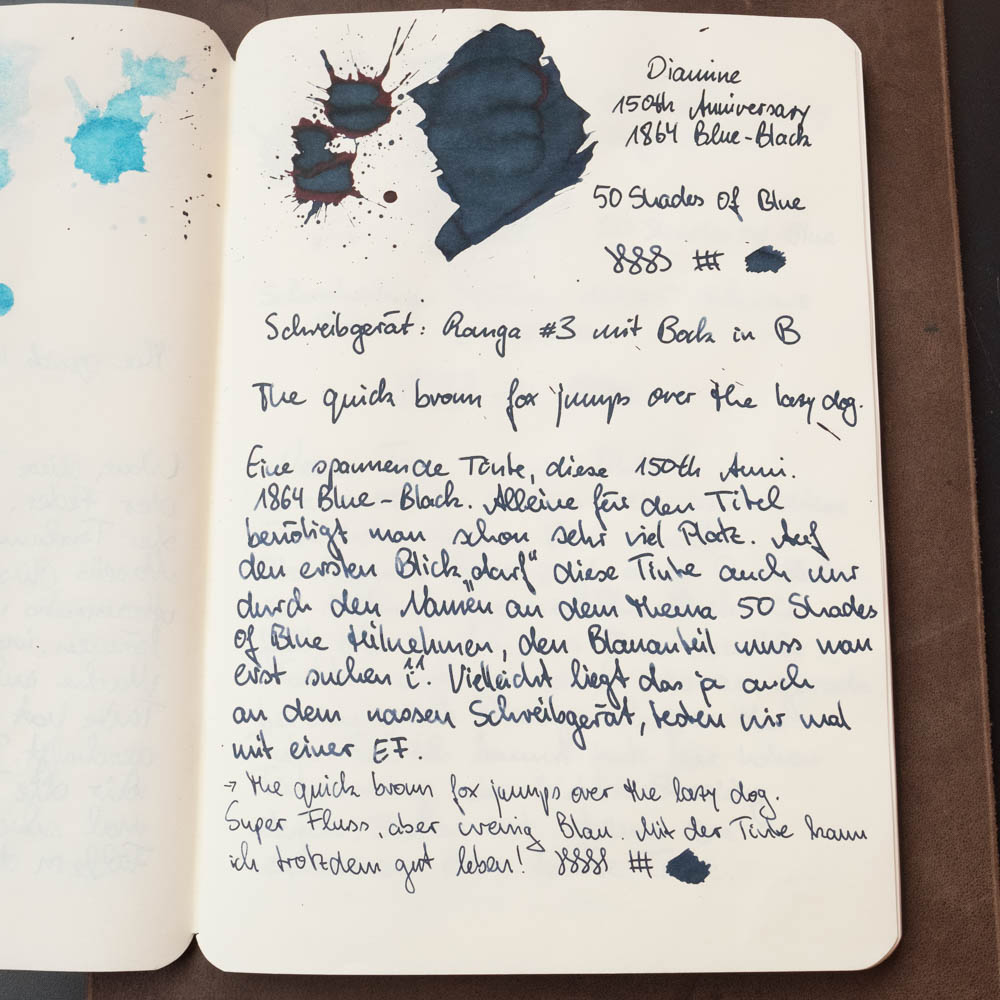 Diamine
150th Anniversary
1864 Blue-Black
50 Shades of Blue
Schreibgerät: Ranga #3 mit Bock in B
The quick brown fox jumps over the lazy dog.
Eine spannende Tinte, diese 150th Anni.
1864 Blue-Black. Alleine für den Titel
benötigt man schon sehr viel Platz. Auf
den ersten Blick „darf“ diese Tinte auch nur
durch den Namen an dem Thema 50 Shades
of Blue teilnehmen, den Blauanteil muss man
erst suchen. Vielleicht liegt das ja auch
an dem nassen Schreibgerät, testen wir mal
mit einer EF.
→ The quick brown fox jumps over the lazy dog.
Super Fluss, aber wenig Blau. Mit der Tinte kann
ich trotzdem gut leben!